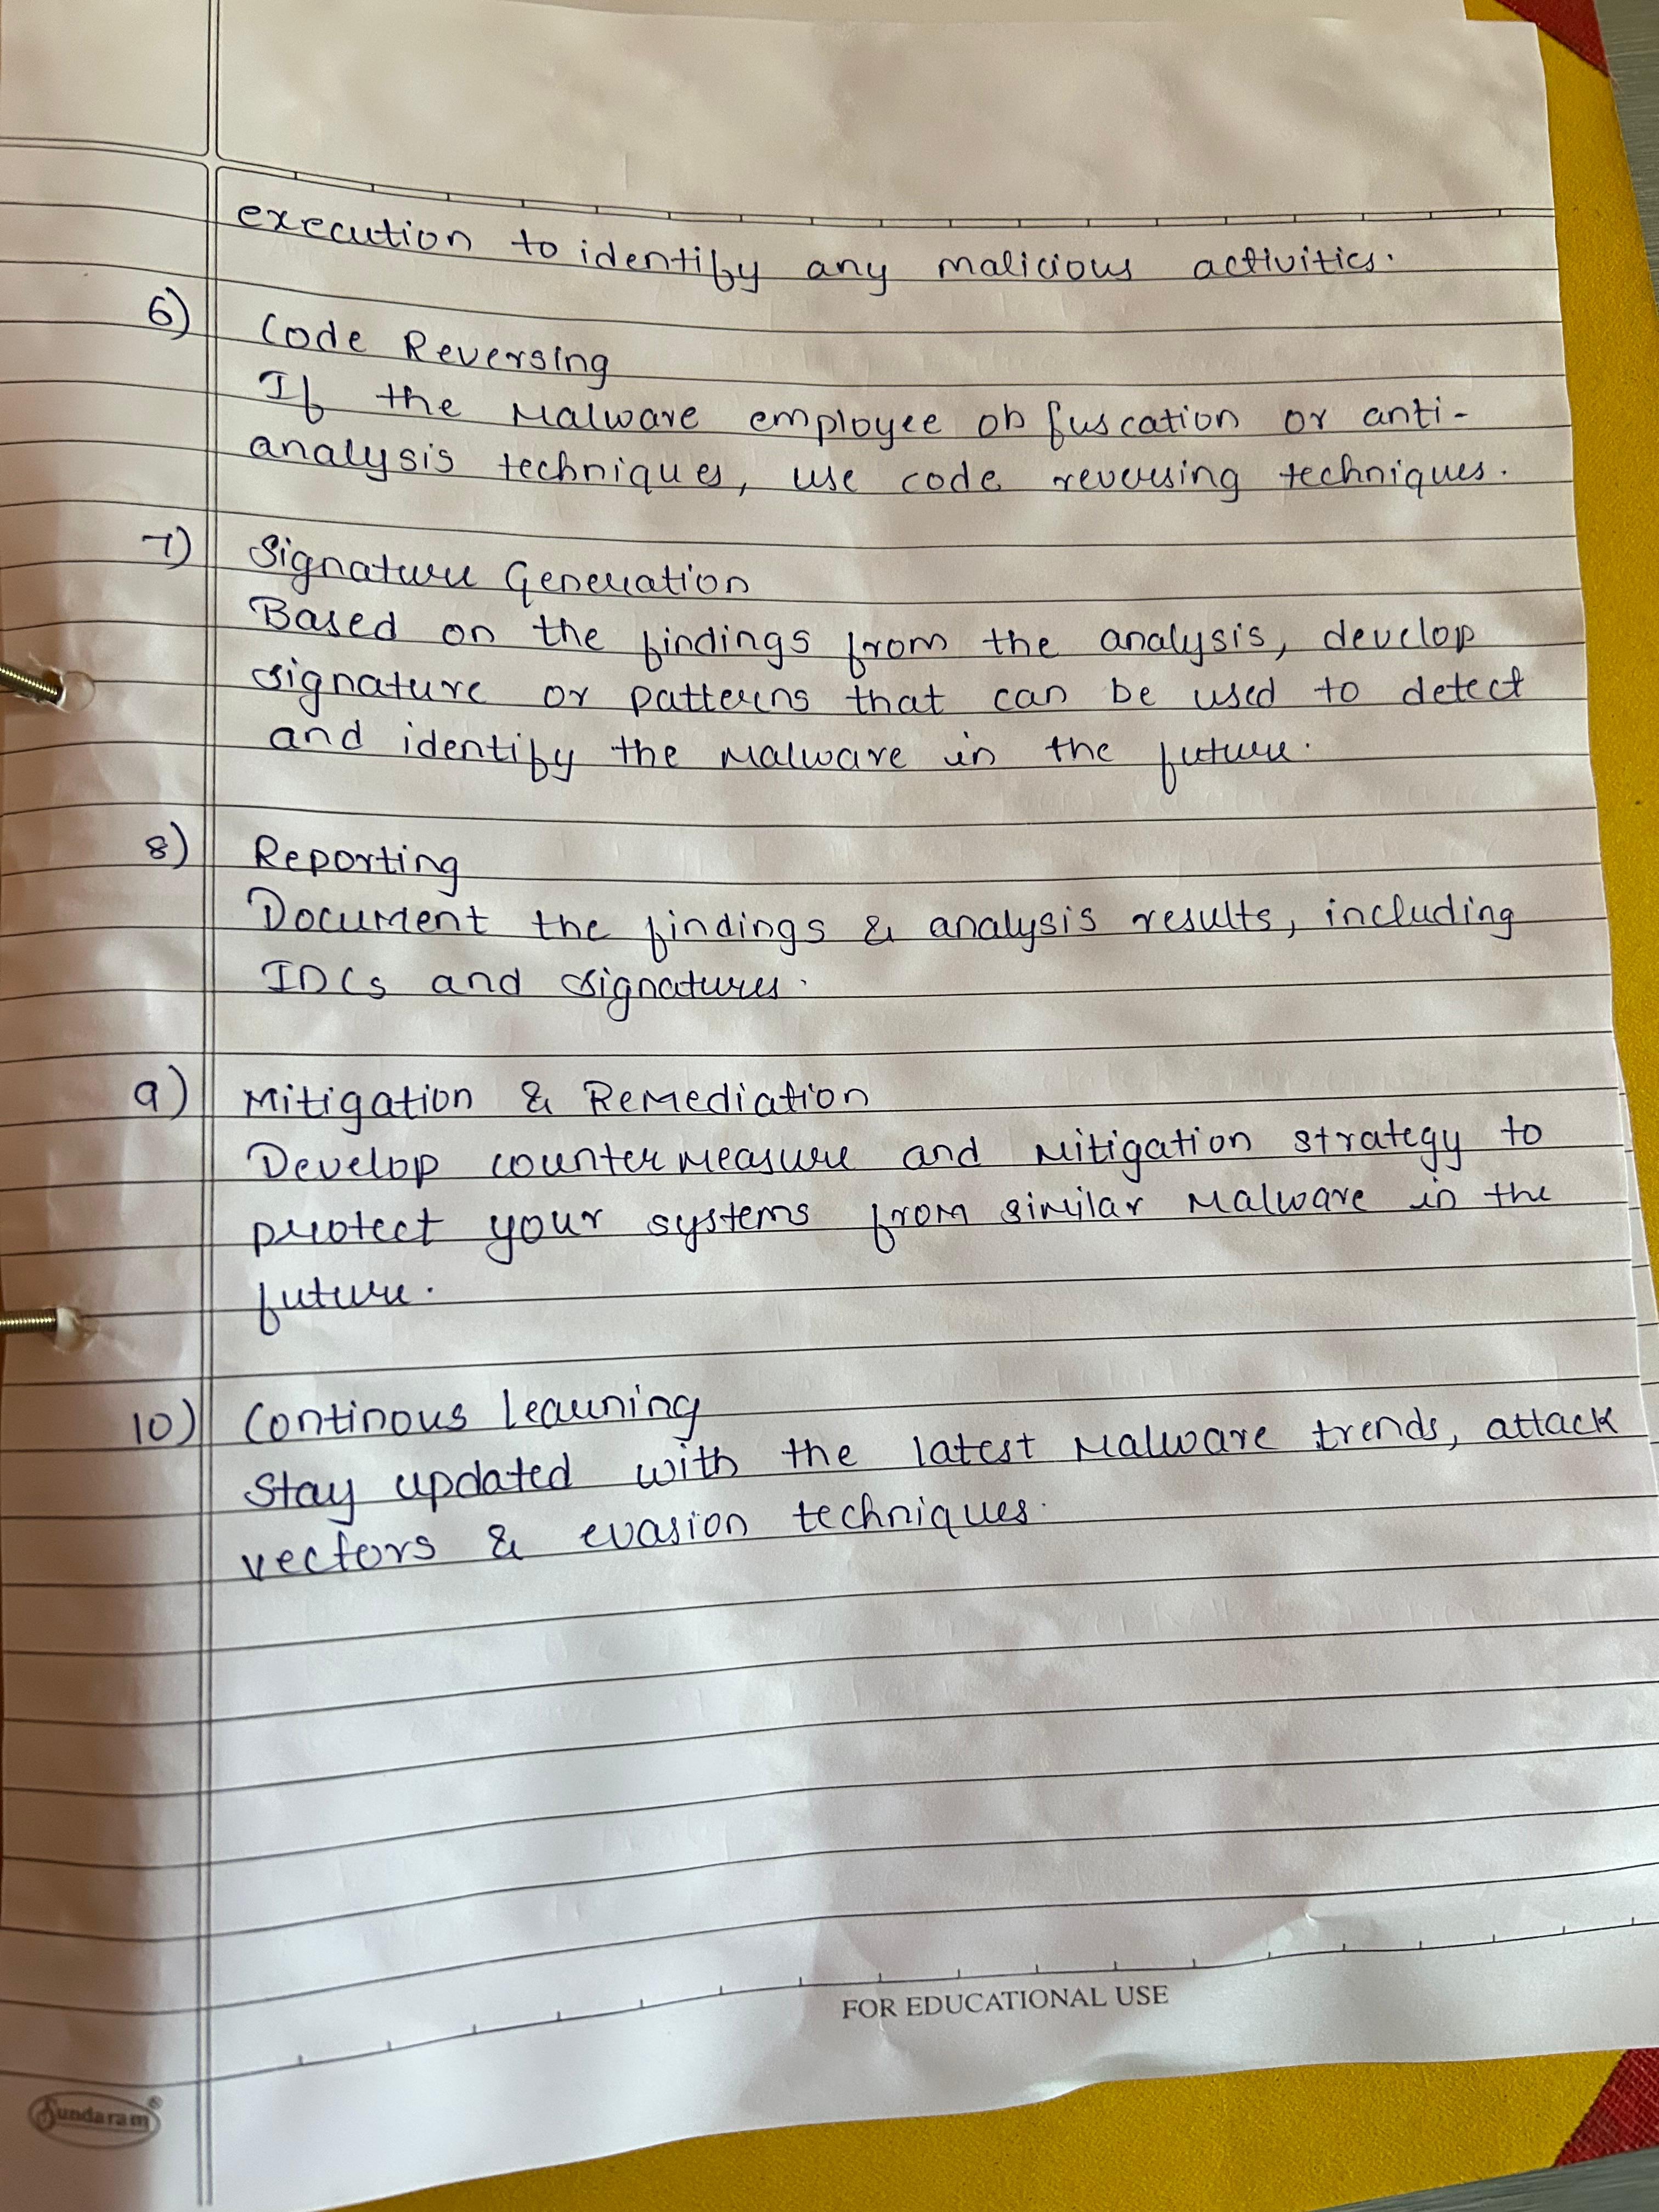 execution to identify any malicious activities.
6) Code Reversing
If the Malware employee obfuscation or anti-
analysis techniques, use code reversing techniques.
7) Signature Generation
Based on the findings from the analysis, develop
signature or patterns that can be used to detect
and identify the Malware in the future.
8) Reporting
Document the findings & analysis results, including
IOCs and signatures.
9) Mitigation & Remediation
Develop countermeasure and Mitigation strategy to
protect your systems from similar Malware in the
future.
10) Continous Learning
Stay updated with the latest Malware trends, attack
vectors & evasion techniques.
FOR EDUCATIONAL USE
Sundaram®